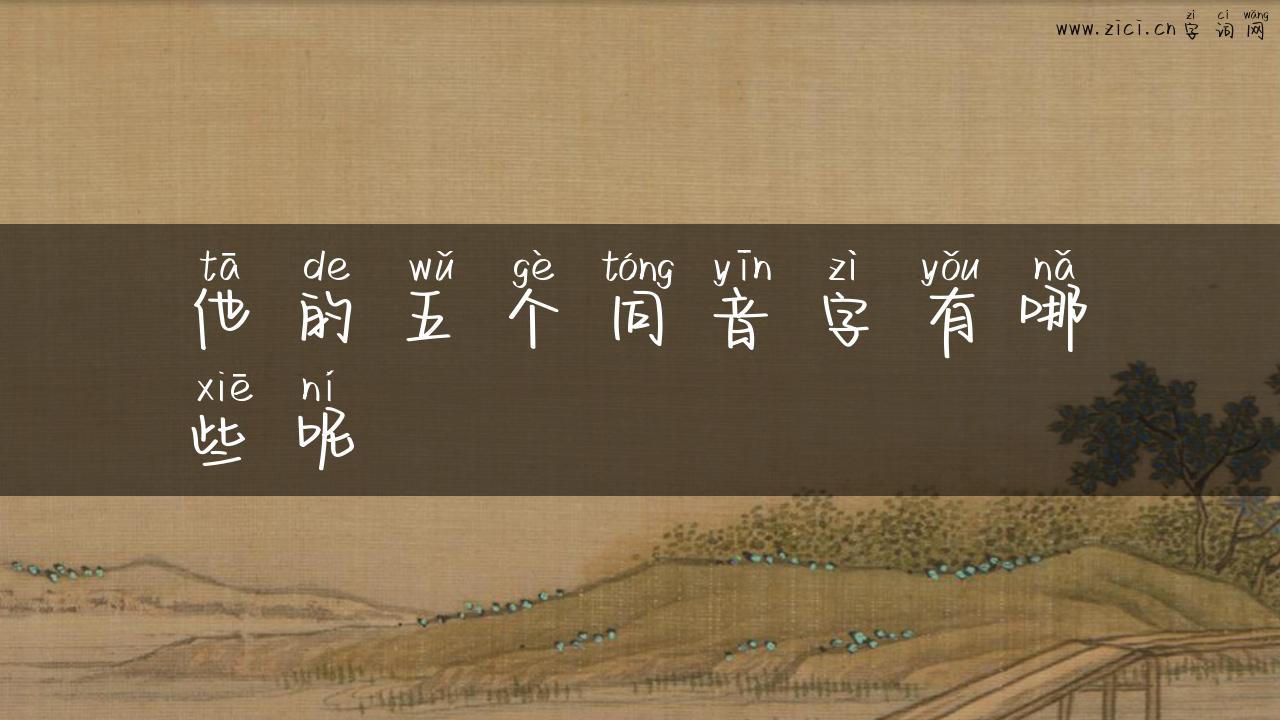 zì cí wǎng
www.zici.cn字词网
tā de wǔ gè tóng yīn zì yǒu nǎ
他的五个同音字有哪
xiē ní
些呢